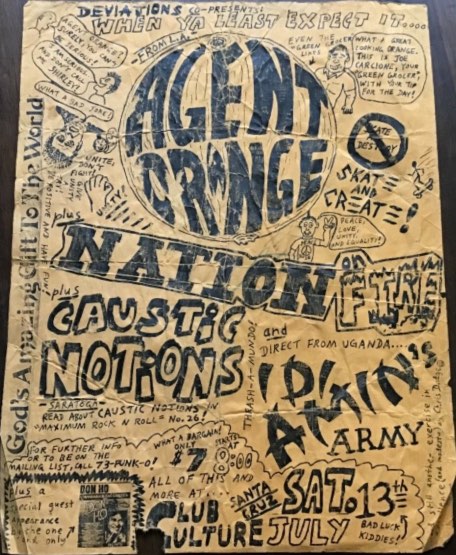 DEVIATIONS CO-PRESENTS:
WHEN YA LEAST EXPECT IT....
-FROM L.A.-
AGENT
ORANGE
AGENT ORANGE?
SURELY YOU CAN'T
BE SERIOUS!
CALL
ME SHIRLEY!
WHAT A BAD JOKE!
EVEN THE GREEN GROCER
LIKES
WHAT A GREAT
LOOKING ORANGE.
THIS IS JOE
CARCIONE, YOUR
"GREEN GROCER",
WITH OUR TIP
FOR THE DAY!
SKATE
DESTROY
SKATE
AND
CREATE!
UNITE,
DON'T
FIGHT!
PEACE,
LOVE,
UNITY,
AND EQUALITY!
God's Amazing Gift To The World
plus
NATION
on
FIRE
plus
CAUSTIC
NOTIONS
-SARATOGA-
READ ABOUT CAUSTIC NOTIONS IN
MAXIMUM ROCK N ROLL # NO. 26!
THRASH-A-MUNDO!
and
DIRECT FROM UGANDA...
IDI
AMIN'S
ARMY
FOR FURTHER INFO
OR TO BE ON THE
MAILING LIST, CALL 73-PUNK-O!
WHAT A BARGAIN!
ONLY
$7
STARTS
AT
8:00
ALL OF THIS AND
MORE AT....
plus a
special guest
appearance
by the one
and only
DON HO
CLUB
CULTURE
SANTA
CRUZ
SAT. 13th
JULY
BAD LUCK
KIDDIES!
still another exercise in